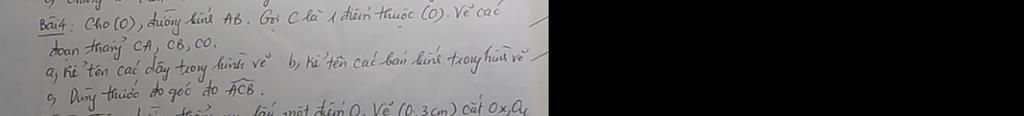 Bài 4: Cho (O), đường kính AB. Gọi C là 1 điểm thuộc (O). Vẽ các
đoạn thẳng CA, CB, CO.
a, Kể tên các dây trong hình vẽ b, Kể tên các bán kính trong hình vẽ
c, Dùng thước đo góc đo ACB.
lấy một điểm O. Vẽ (O, 3cm) cắt Ox, Oy